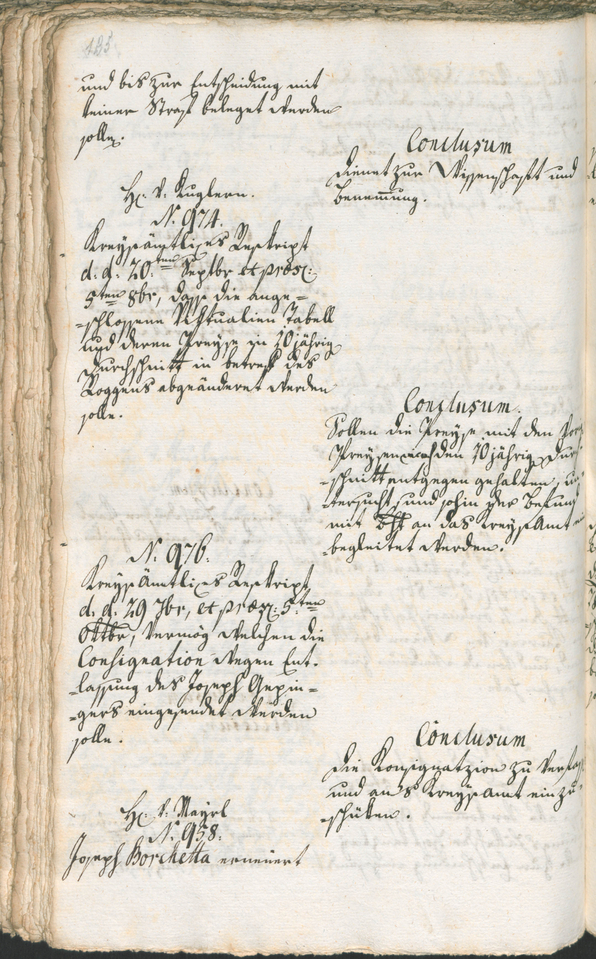 135.
und bis zur Entscheidung mit
keiner Straf beleget werden
solle.
Conclusum
dienet zur Wissenschaft und
Benemmung.
H: v. Kuglern.
N. 974.
Kreysämtliches Reskript
d: d: 20.ten Septbr et præs:
5ten 8br, dass die ange=
=schlossene Viktualien Tabell
und deren Preyse in 10 jährig
Durchschnitt in betref des
Roggens abgeänderet werden
solle.
Conclusum.
Sollen die Preyse mit den
Preysen nach den 10 jährig Dur
=schnitt entgegen gehalten, un
=tersucht, und sohin der Befund
mit an das Kreysamt
=begleitet werden.
N. 976.
Kreysämtliches Reskript
d. d. 29 7br, et præs: 5ten
Oktbr, vermög welchen die
Consignation wegen Ent=
=lassung des Joseph
=gers eingesendet werden
solle.
Conclusum
die Konsignatzion zu
und an's Kreysamt einzu
=schüken.
H: v: Mayrl
N. 938.
Joseph Borchetta erneuert